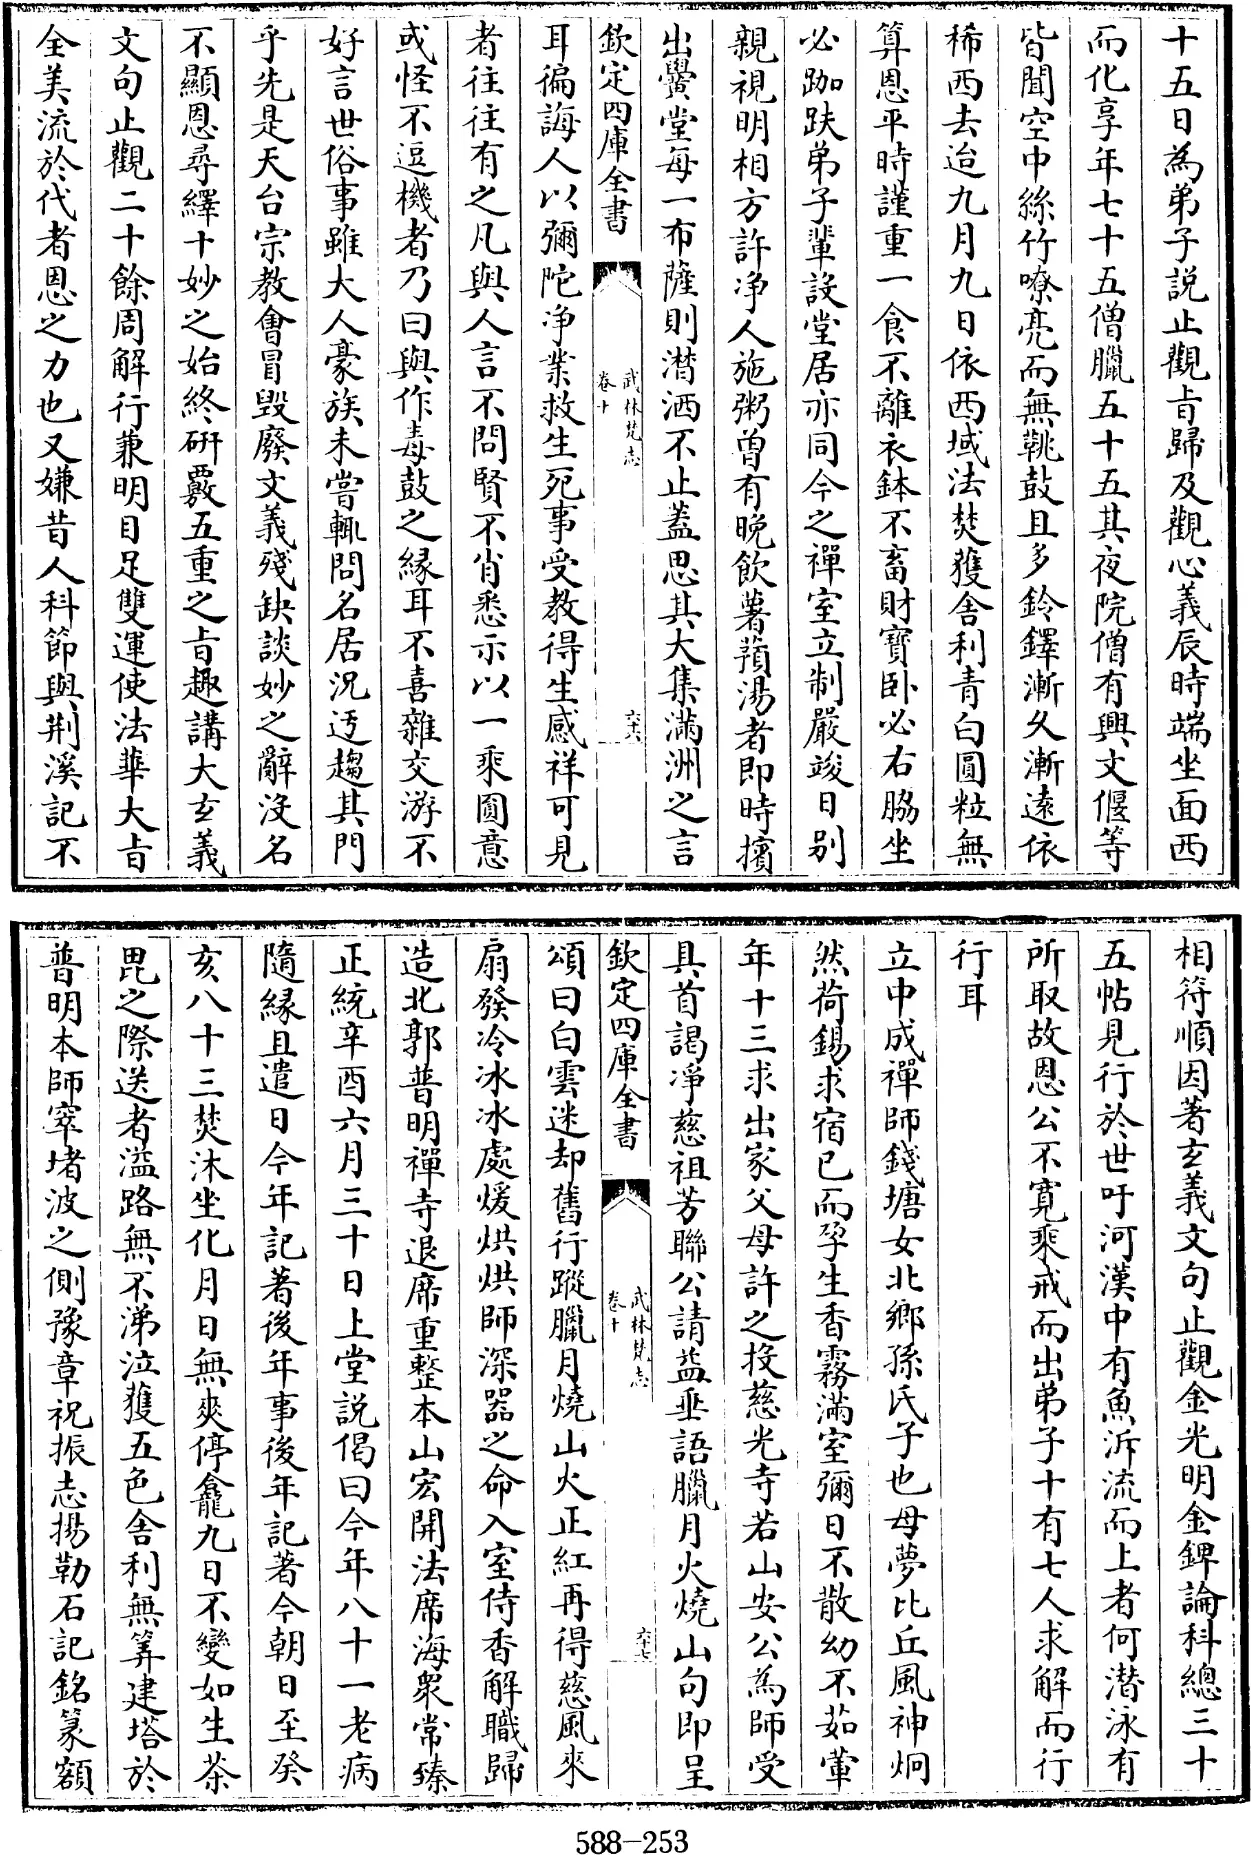 十五日為弟子説止觀㫖歸及觀心義辰時端坐面西
而化享年七十五僧臘五十五其夜院僧有興文偃等
皆聞空中絲竹嘹亮而無鞉鼓且多鈴鐸漸久漸遠依
稀西去迨九月九日依西域法焚獲舍利青白圓粒無
算恩平時謹重一食不離衣鉢不畜財寳卧必右脇坐
必跏趺弟子輩設堂居亦同今之禪室立制嚴竣日别
親視明相方許净人施粥曽有晚飲薯蕷湯者即時擯
出黌堂每一布薩則潸洒不止葢思其大集滿洲之言
欽定四庫全書
武林梵志
卷十
六十六
耳徧誨人以彌陀净業救生死事受教得生感祥可見
者往往有之凡與人言不問賢不肖悉示以一乘圓意
或怪不逗機者乃曰與作毒鼓之縁耳不喜雜交游不
好言世俗事雖大人豪族未嘗輙問名居況迃趨其門
乎先是天台宗教會冒毀廢文義殘缺談妙之辭沒名
不顯恩尋繹十妙之始終研覈五重之㫖趣講大玄義
文句止觀二十餘周解行兼明目足雙運使法華大㫖
全美流於代者恩之力也又嫌昔人科節與荆溪記不
相符順因著玄義文句止觀金光明金錍論科總三十
五帖見行於世吁河漢中有魚泝流而上者何潜泳有
所取故恩公不寛乘戒而出弟子十有七人求解而行
行耳
立中成禪師錢塘女北鄉孫氏子也母夢比丘風神炯
然荷錫求宿已而孕生香霧滿室彌日不散幼不茹葷
年十三求出家父母許之投慈光寺若山安公為師受
具首謁淨慈祖芳聯公請益垂語臘月火燒山句即呈
欽定四庫全書
武林梵志
卷十
六十七
頌曰白雲迷却舊行蹤臘月燒山火正紅再得慈風來
扇發冷冰冰處煖烘烘師深器之命入室侍香解職歸
造北郭普明禪寺退席重整本山宏開法席海衆常臻
正統辛酉六月三十日上堂説偈曰今年八十一老病
隨縁且遣日今年記著後年事後年記著今朝日至癸
亥八十三焚沐坐化月日無爽停龕九日不變如生茶
毘之際送者溢路無不涕泣獲五色舍利無筭建塔於
普明本師窣堵波之側豫章祝振志揚勒石記銘篆額
588-253